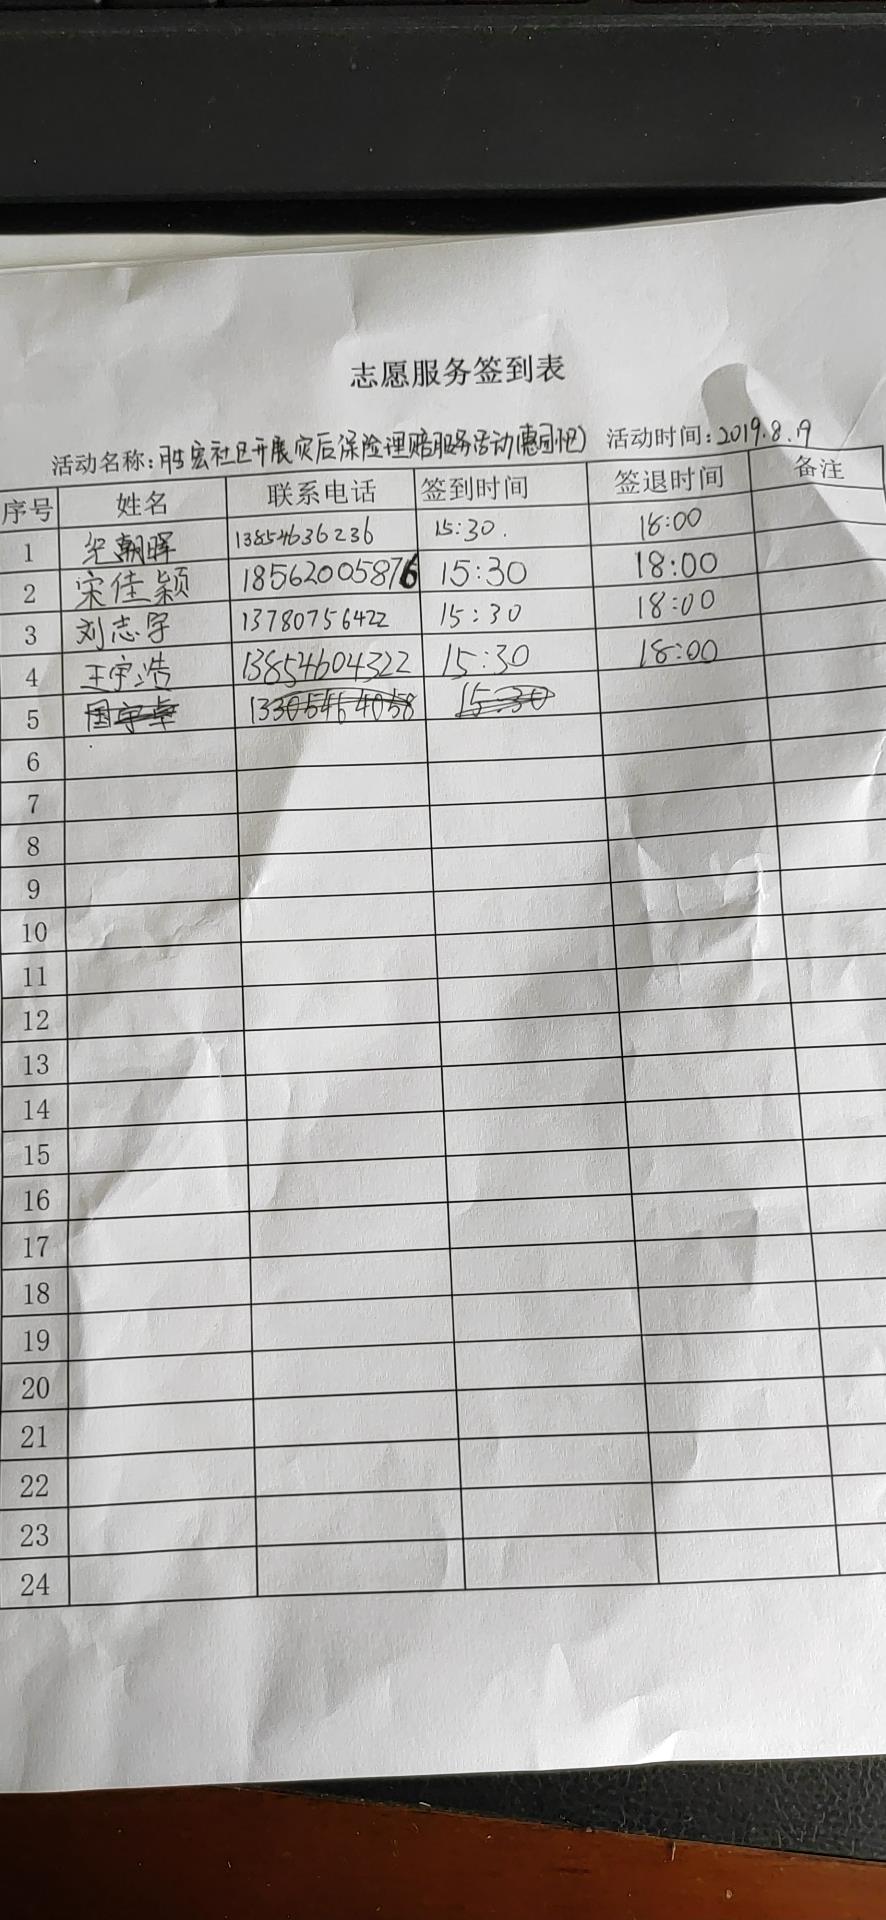 志愿服务签到表
活动名称:胜宏社区开展灾后保险理赔服务活动 活动时间:2019.8.19
序号 姓名 联系电话 签到时间 签退时间 备注
1 朝晖 13854636236 15:30. 18:00
2 宋佳颖 18562005876 15:30 18:00
3 刘志宇 13780756422 15:30 18:00
4 王宇浩 13854604322 15:30 18:00
5 15:30
6
7
8
9
10
11
12
13
14
15
16
17
18
19
20
21
22
23
24